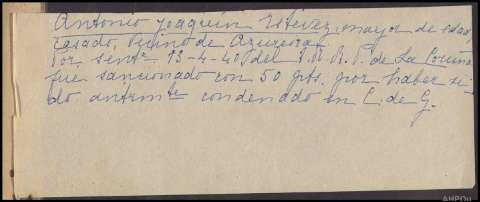 Antonio Joaquín Estevez, mayor de edad,
casado, vecino de
Por sentª 13-4-40 del T. R. P. de La Coruña
fue sancionado con 50 pts. por haber si-
do antrmte condenado en C. de G.
AHPOu